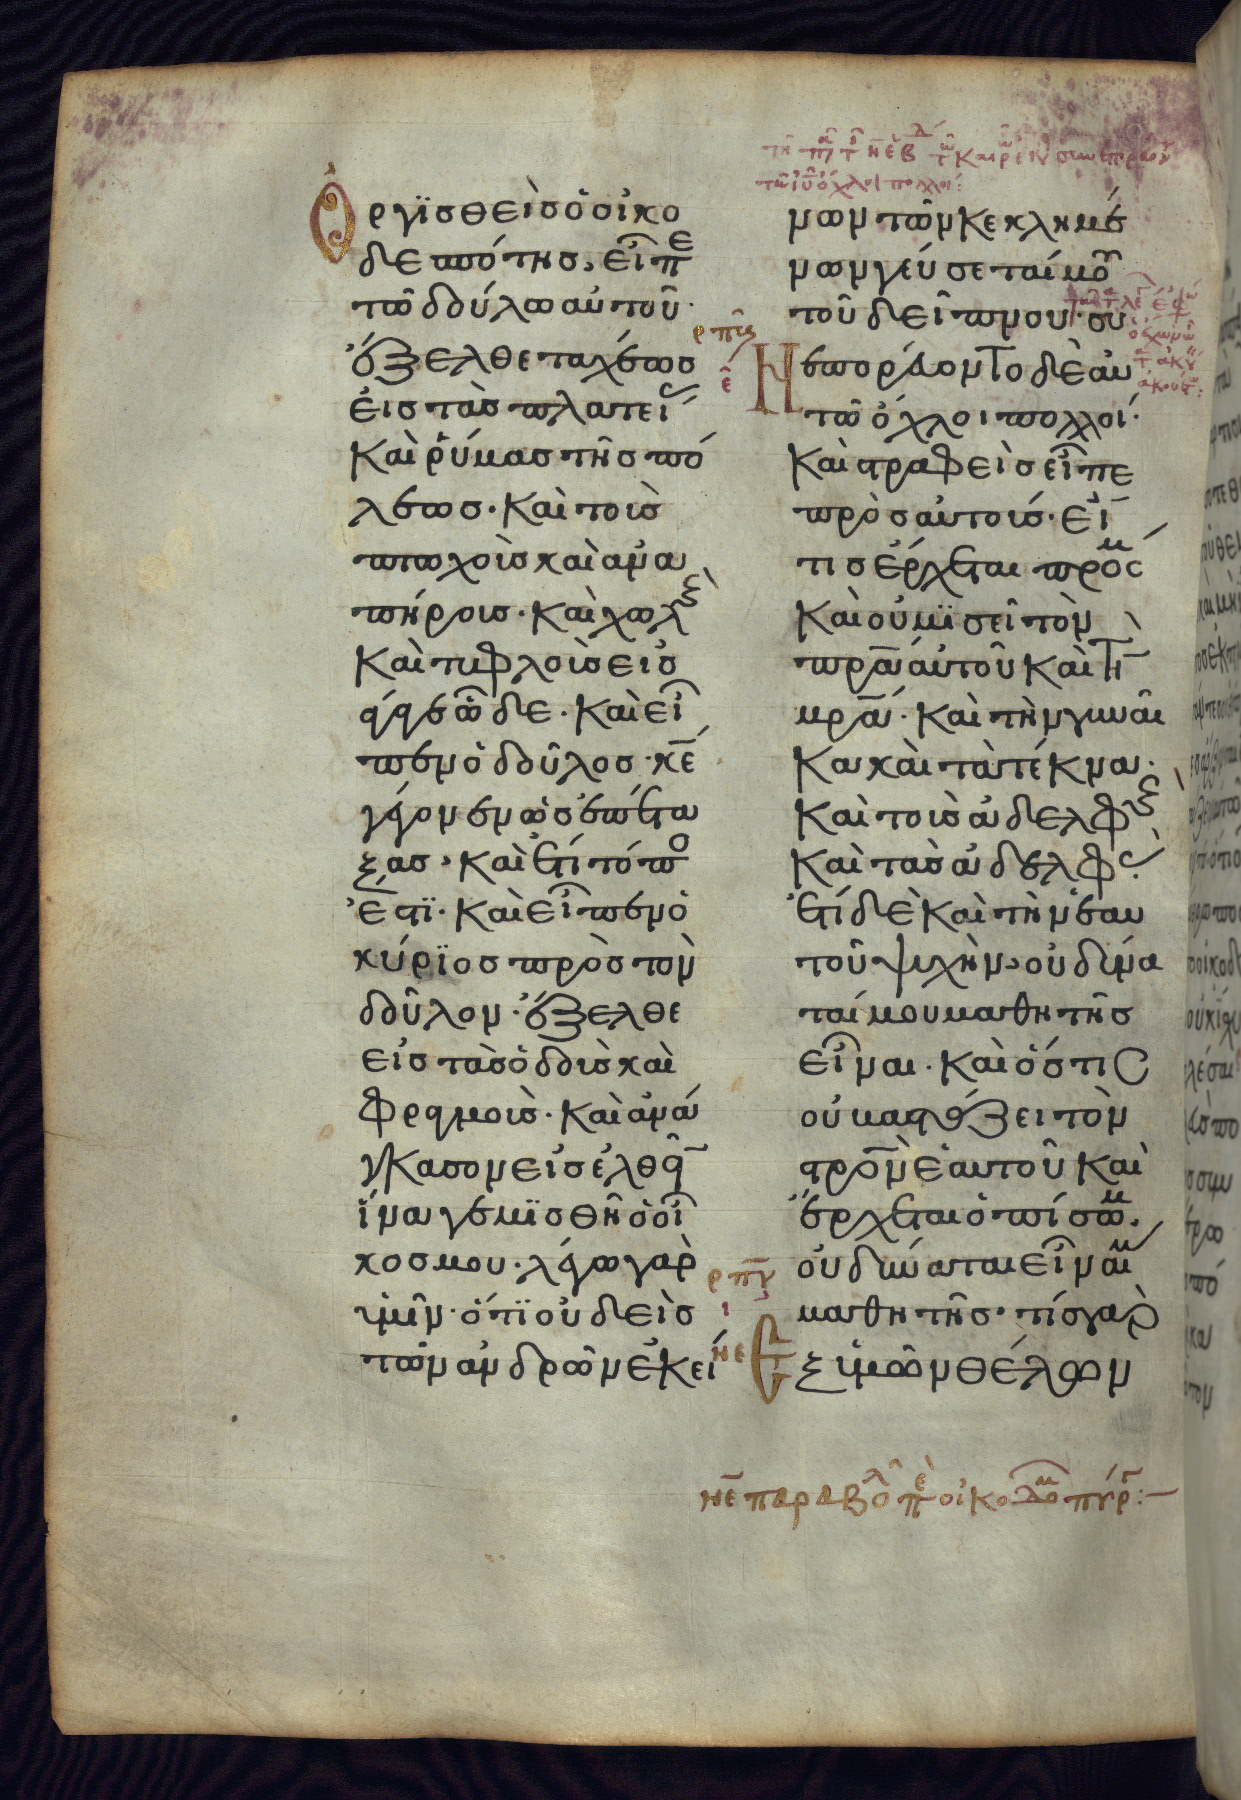 Ὀργϊσθεὶς ὁ οἰκο
δεσπότης, εἶπε
τῷ δούλῳ αὐτοῦ·
ἔξελθε ταχέως
εἰς τὰς πλατεί
καὶ ῥύμας τῆς πό
λεως· καὶ τοὺς
πτωχοὺς καὶ ἀνα
πήρους· καὶ χωλοὺς
καὶ τυφλοὺς εἰσ
άγαγε ὧδε· καὶ εἶ
πεν ὁ δοῦλος· κε
γέγονεν ὡς ἐπέτα
ξας· καὶ ἔτι τόπος
ἐστϊ· καὶ εἶπεν ὁ
κύρϊος πρὸς τὸν
δοῦλον· ἔξελθε
εἰς τὰς ὁδοὺς καὶ
φραγμοὺς· καὶ ἀνά
γκασον εἰσελθεῖ
ἵνα γεμϊσθῇ ὁ οἶ
κός μου· λέγω γὰρ
ὑμῖν· ὅτϊ οὐδεὶς
τῶν ἀνδρῶν ἐκεί
νων τῶν κεκλημέ
νων γεύσεταί μου
τοῦ δείπνου·
ρπβ
Ἡ
ε
Συ
νεπορεύοντο δὲ αὐ
τῷ ὄχλοι πολλοί·
καὶ στραφεὶς εἶπε
πρὸς αὐτούς· εἴ
τις ἔρχεται πρός μ
καὶ οὐ μϊσεῖ τὸν
πρα αὐτοῦ καὶ τὴ
μρα· καὶ τὴν γυναῖ
κα καὶ τὰ τέκνα·
καὶ τοὺς ἀδελφοὺς
καὶ τὰς ἀδελφάς·
ἔτι δὲ καὶ τὴν ἑαυ
τοῦ ψυχὴν, οὐ δύνα
ταί μου μαθητὴς
εἶναι· καὶ ὅστις
οὐ βαστάζει τὸν
στρον ἑαυτοῦ καὶ
ἔρχεται ὀπίσω μ.
οὐ δύναται εἶναί μ
ρπγ
ι
μαθητής· τίς γὰρ
νε
ἐξ ὑμῶν θέλων
νε παραβολ πε οἰκοδομ πύργ:—